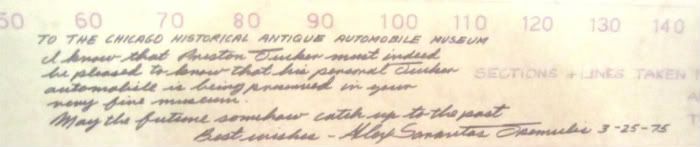 50 60 70 80 90 100 110 120 130 140
TO THE CHICAGO HISTORICAL ANTIQUE AUTOMOBILE MUSEUM
I know that Preston Tucker must indeed
be pleased to know that his personal Tucker
automobile is being preserved in your
very fine museum.
SECTIONS + LINES TAKEN
May the future somehow catch up to the past
Best wishes - Alex Sarantos Tremulis 3-25-75